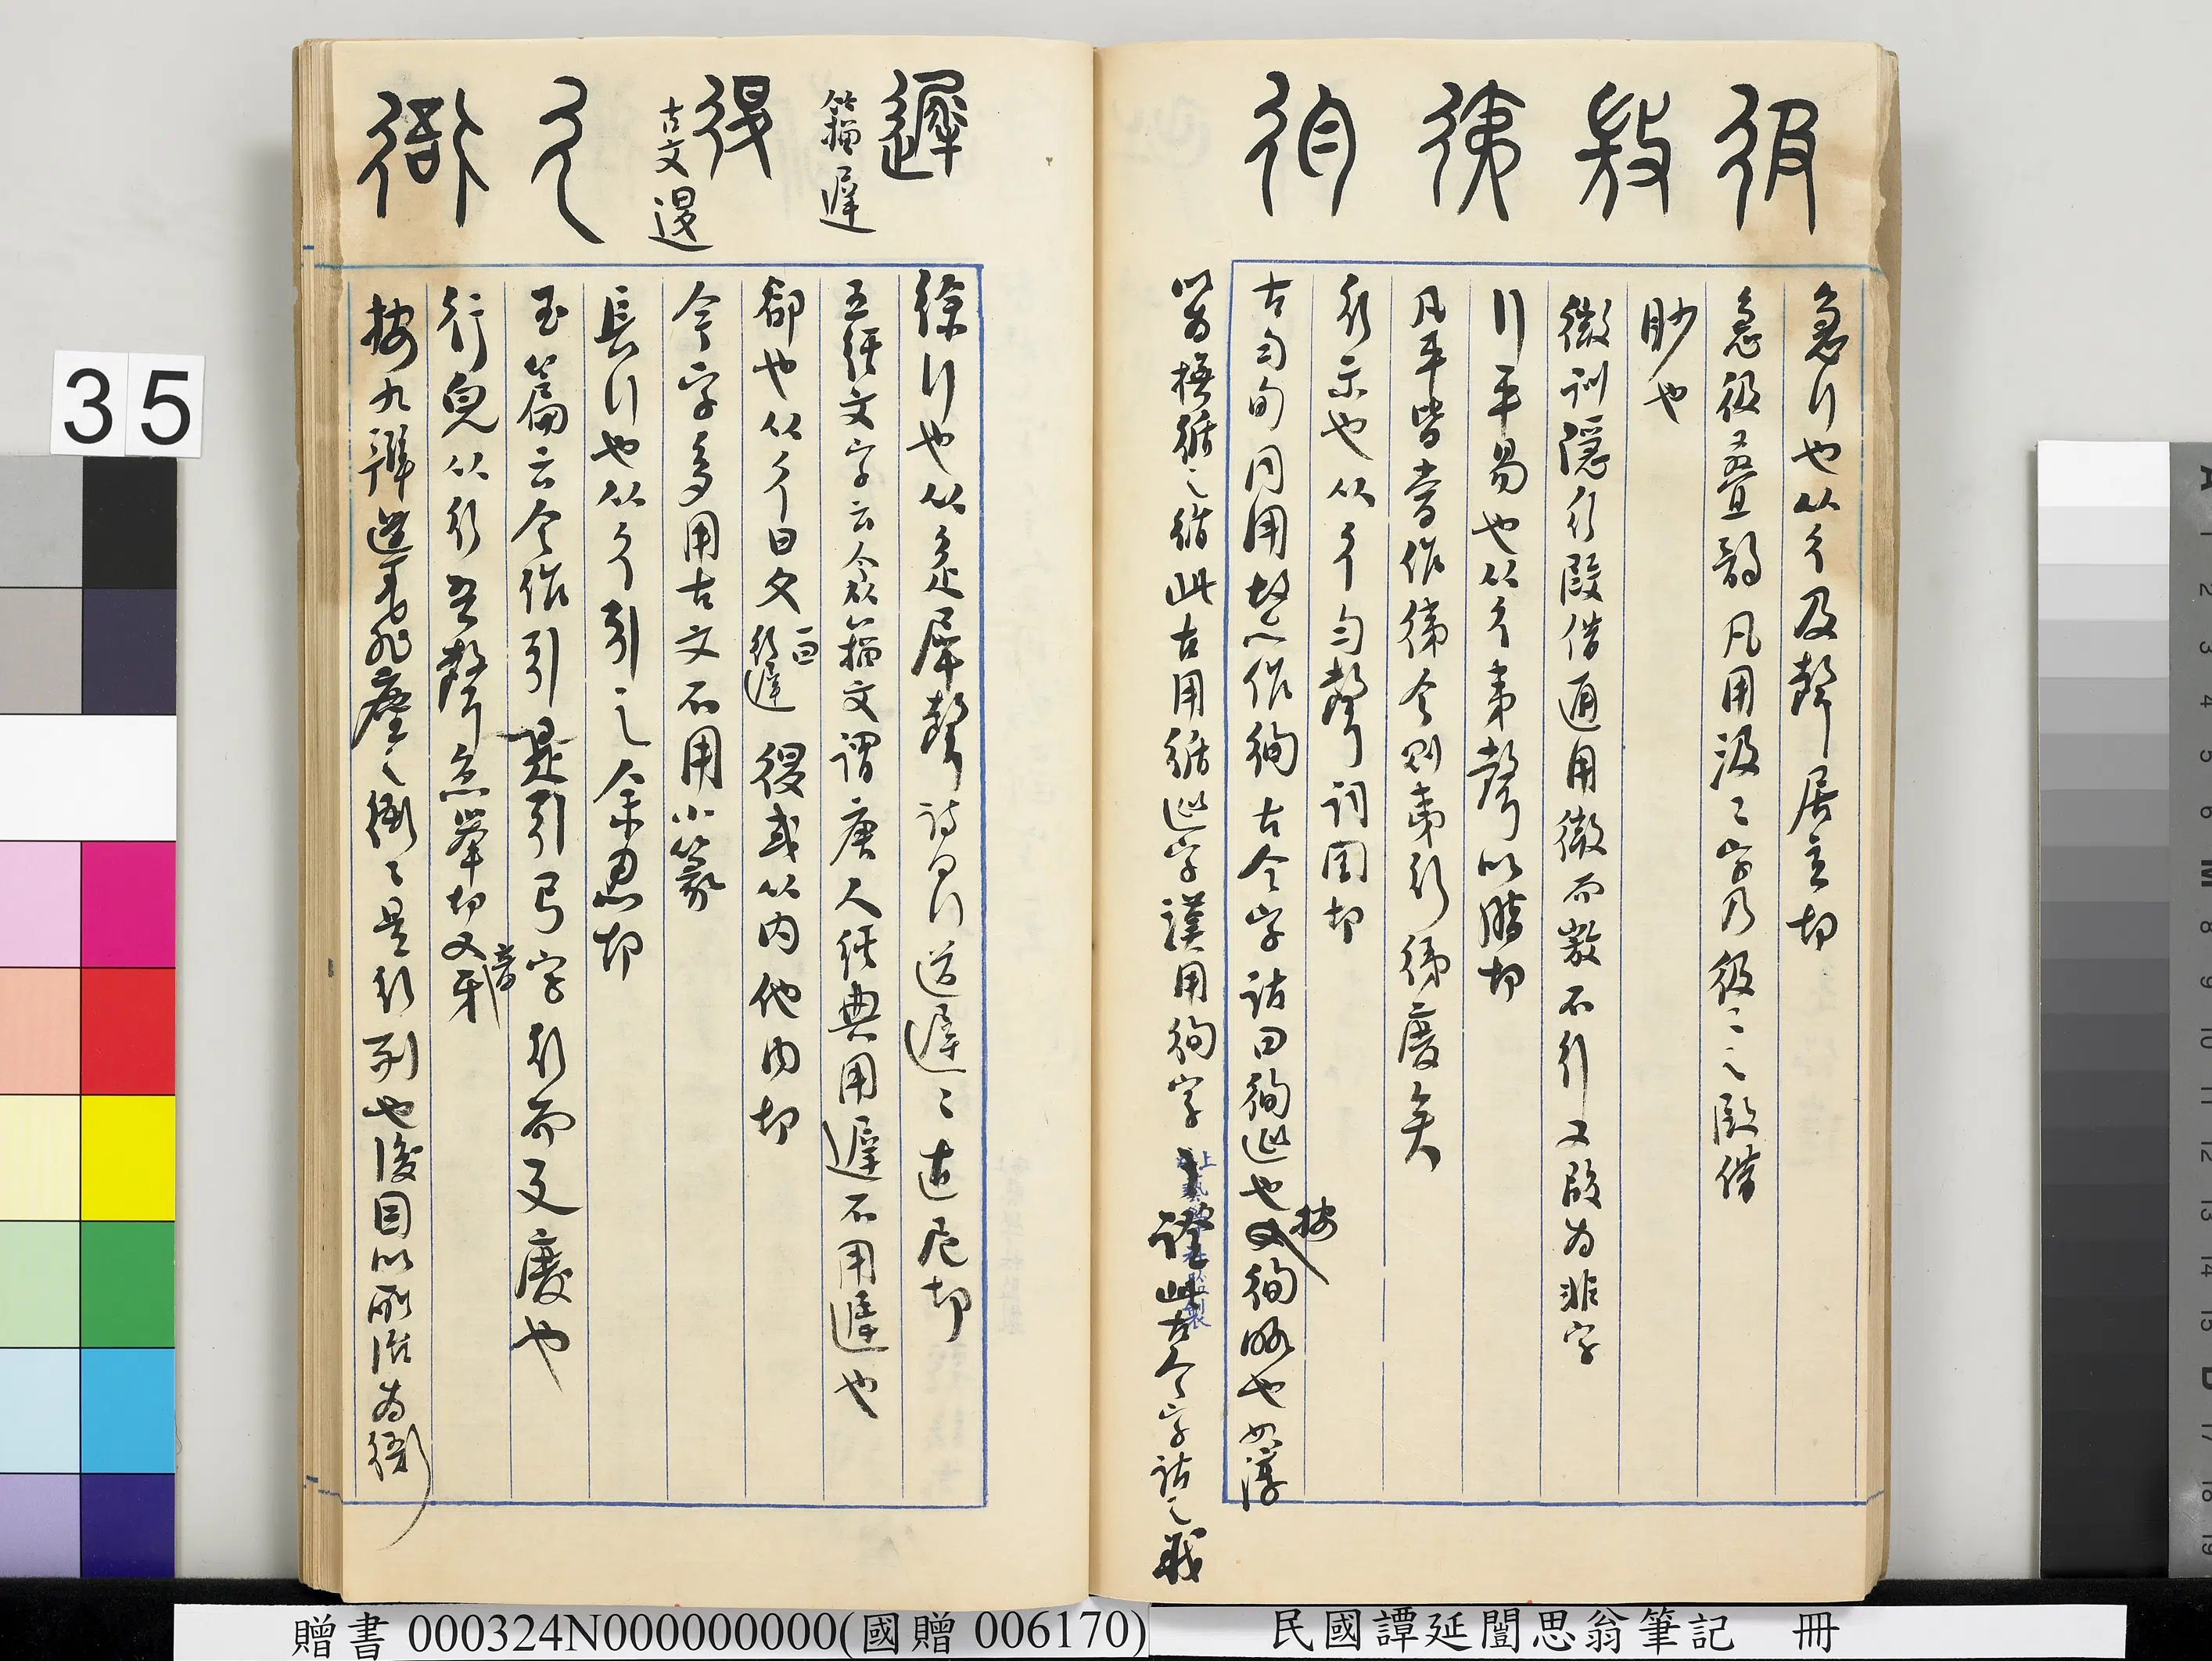 彶 𢼸 徲 徇
急行也从彳及聲居立切
急彶疊韵凡用汲〻字乃彶〻之叚借
眇也
微訓隱行叚借通用微而𢼸不行又叚為非字
行平易也从彳夷聲以脂切
凡平皆當作徲今則夷行徲廢矣
行示也从彳勻聲詞閏切
古勻旬同用故亦作徇古今字詁曰徇巡也按徇略也如淳
以為撫循之循此古用循巡字漢用徇字之證此古今字詁之義
遲 籀遲 復 古文退 廴 衙
徐行也从辵犀聲詩曰行道遲〻直尼切
五經文字云今从籀文謂唐人經典用遲不用遲也
卻也从彳日夊一曰行遲 復或从內他內切
今字多用古文不用小篆
長行也从彳引之余忍切
玉篇云今作引是引弓字行而廴廢也
行皃从行吾聲魚舉切又音牙
按九辯導飛廉之衙〻是行列也後因以所治為衙
35
贈書 000324N000000000(國贈 006170)
民國譚延闓思翁筆記 冊